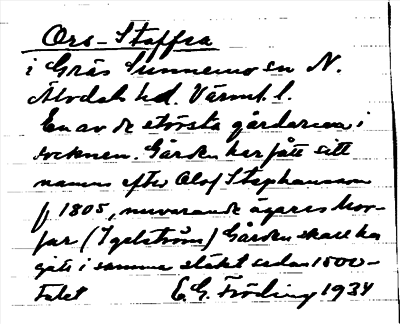 Ors-Staffra
i Gräs Sunnemo sn N.
Älvdals hd. Värml. l.
En av de största gårdarna i
socknen. Gården har fått sitt
namn efter Olof Stephansson
f. 1805, nuvarande ägares mor-
far (Igelström) Gården skall ha
gått i samma släkt sedan 1500-
talet E. G. Fröding 1934